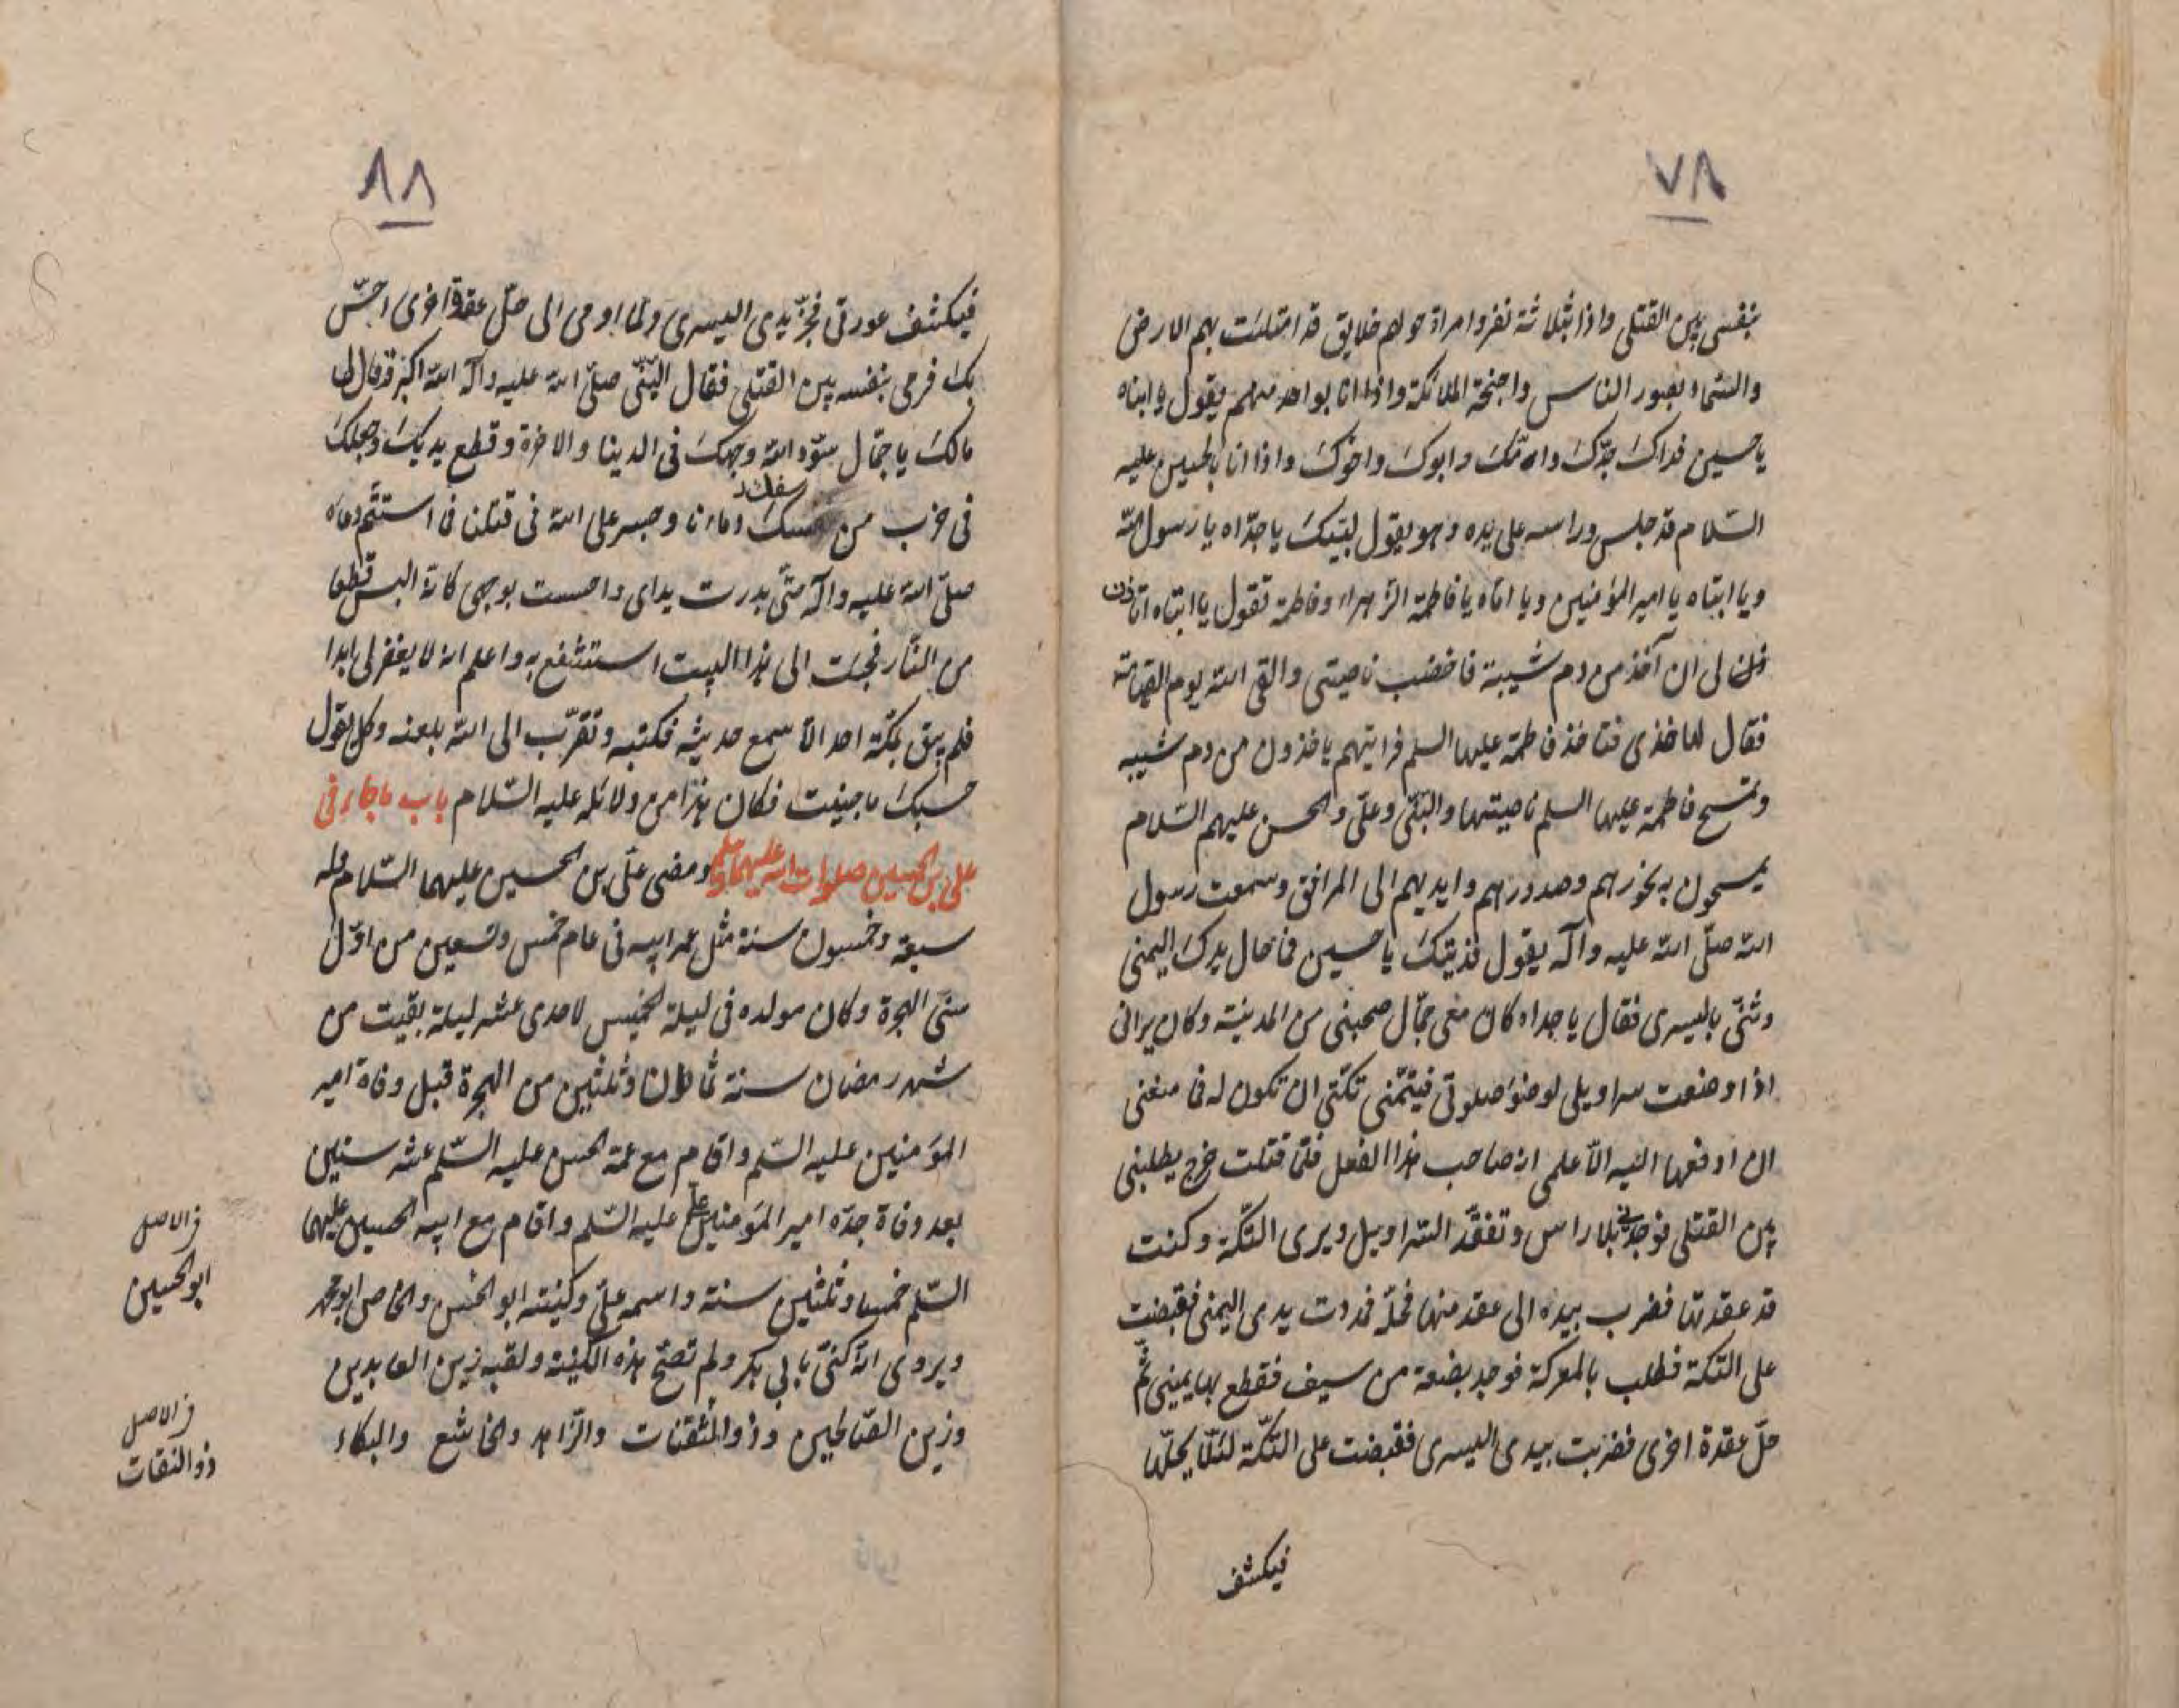 ٧٨
بنفسى بين القتلى واذا بثلاثة نفر وامراة حولهم خلايق قد امتلئت بهم الارض
والسماء بصور الناس واجنحة الملائكة واذا انا بواحد منهم يقول وا ابناه
يا حسين فداك جدّك وامّك وابوك واخوك واذا انا بالحسين عليه
السّلام قد جلس وراسه على يده وهو يقول لبّيك يا جدّاه يا رسول اللّه
ويا ابتاه يا امير المؤمنين ويا امّاه يا فاطمة الزّهراء وفاطمة تقول يا ابتاه اتاذن
لى ان آخذ من دم شيبة فاخضب ناصيتى والقى اللّه يوم القيامة
فقال لها خذى فتاخذ فاطمة عليها السلم فرايتهم ياخذون من دم شيبه
وتمسح فاطمة عليها السلم ناصيتها والنبّى وعلى والحسن عليهم السّلام
يمسحون به نحورهم وصدورهم وايديهم الى المرافق وسمعت رسول
اللّه صلّى اللّه عليه وآله يقول فديتك يا حسين فما حال يدك اليمنى
وثنّى باليسرى فقال يا جداه كان معى جمّال صحبنى من المدينة وكان يرانى
اذا وضعت سراويلى لوضوء صلوتى فيتمّنى تكّتى ان تكون له فما منعنى
ان ادفعها اليه الّا علمى انه صاحب هذا الفعل فلمّا قتلت خرج يطلبنى
بين القتلى فوجدنى بلا راس وتفقّد السّراويل ويرى التكّة وكنت
قد عقدتها فضرب بيده الى عقد منها فحلّه فمددت يدى اليمنى فقبضت
على التّكة فطلب بالمعركة فوجد بضعة من سيف فقطع بها يمينى ثمّ
حلّ عقدة اخرى فضربت بيدى اليسرى فقبضت على التكّة لئلّا يحلّها
فيكشف
٨٨
فيكشف عورتى فجزّ يدى اليسرى ولمّا اومى الى حلّ عقدة اخرى احسّ
بك فرمى بنفسه بين القتلى فقال النّبى صلّى اللّه عليه وآله اللّه اكبر وقال لى
مالك يا جمّال سوّد اللّه وجهك فى الدينا والاخرة وقطع يديك وجعلك
فى حزب من سفك دماءنا وجسر على اللّه فى قتلنا فما استتمّ دعاه
صلّى اللّه عليه وآله حتّى بدرت يداى واحسست بوجهى كانّه البس قطعا
من النّار فجئت الى هذا البيت استشفع به واعلم انه لا يغفر لى ابدا
فلم يبق بمكّة احد الّا سمع حديثه فكتبه وتقرّب الى اللّه بلعنه وكل يقول
حسبك ما جنيت فكان هذا من دلائله عليه السّلام باب ما جاء فى
على بن الحسين صلوات اللّه عليهما ومضى علّى بن الحسين عليهما السّلام وله
سبعة وخمسون سنة مثل عمر ابيه فى عام خمس وتسعين من اوّل
سنى الهجرة وكان مولده فى ليلة الخميس لاحدى عشر ليلة بقيت من
شهر رمضان سنة ثمان وثلثين من الهجرة قبل وفاة امير
المؤمنين عليه السّلم واقام مع عمّه الحسن عليه السّلم عشر سنين
بعد وفاة جدّه امير المؤمنين علىّ عليه السّلم واقام مع ابيه الحسين عليهما
السّلم خمسا وثلثين سنة واسمه علىّ وكنيته ابو الحسن والخاص ابو محمد
ويروى انّه كنّى بابى بكر ولم تصحّ هذه الكنية ولقبه زين العابدين
وزين الصّالحين وذو الثفنات والزّاهد والخاشع والبكاء
فى الاصل
ابو الحسين
فى الاصل
ذو النقات